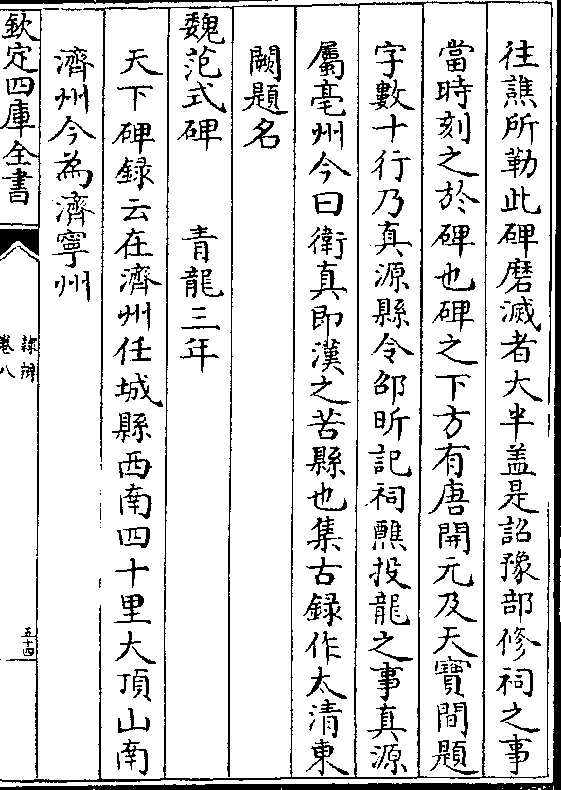 往譙所勒此碑磨滅者大半盖是詔豫部修祠之事
當時刻之於碑也碑之下方有唐開元及天寶間題
字數十行乃真源縣令邵昕記祠醮投龍之事真源
屬亳州今曰衛真即漢之苦縣也集古録作太清東
闕題名
魏范式碑　青龍三年
天下碑録云在濟州任城縣西南四十里大頂山南
濟州今為濟寧州
欽定四庫全書
隷辨
卷八
五十四